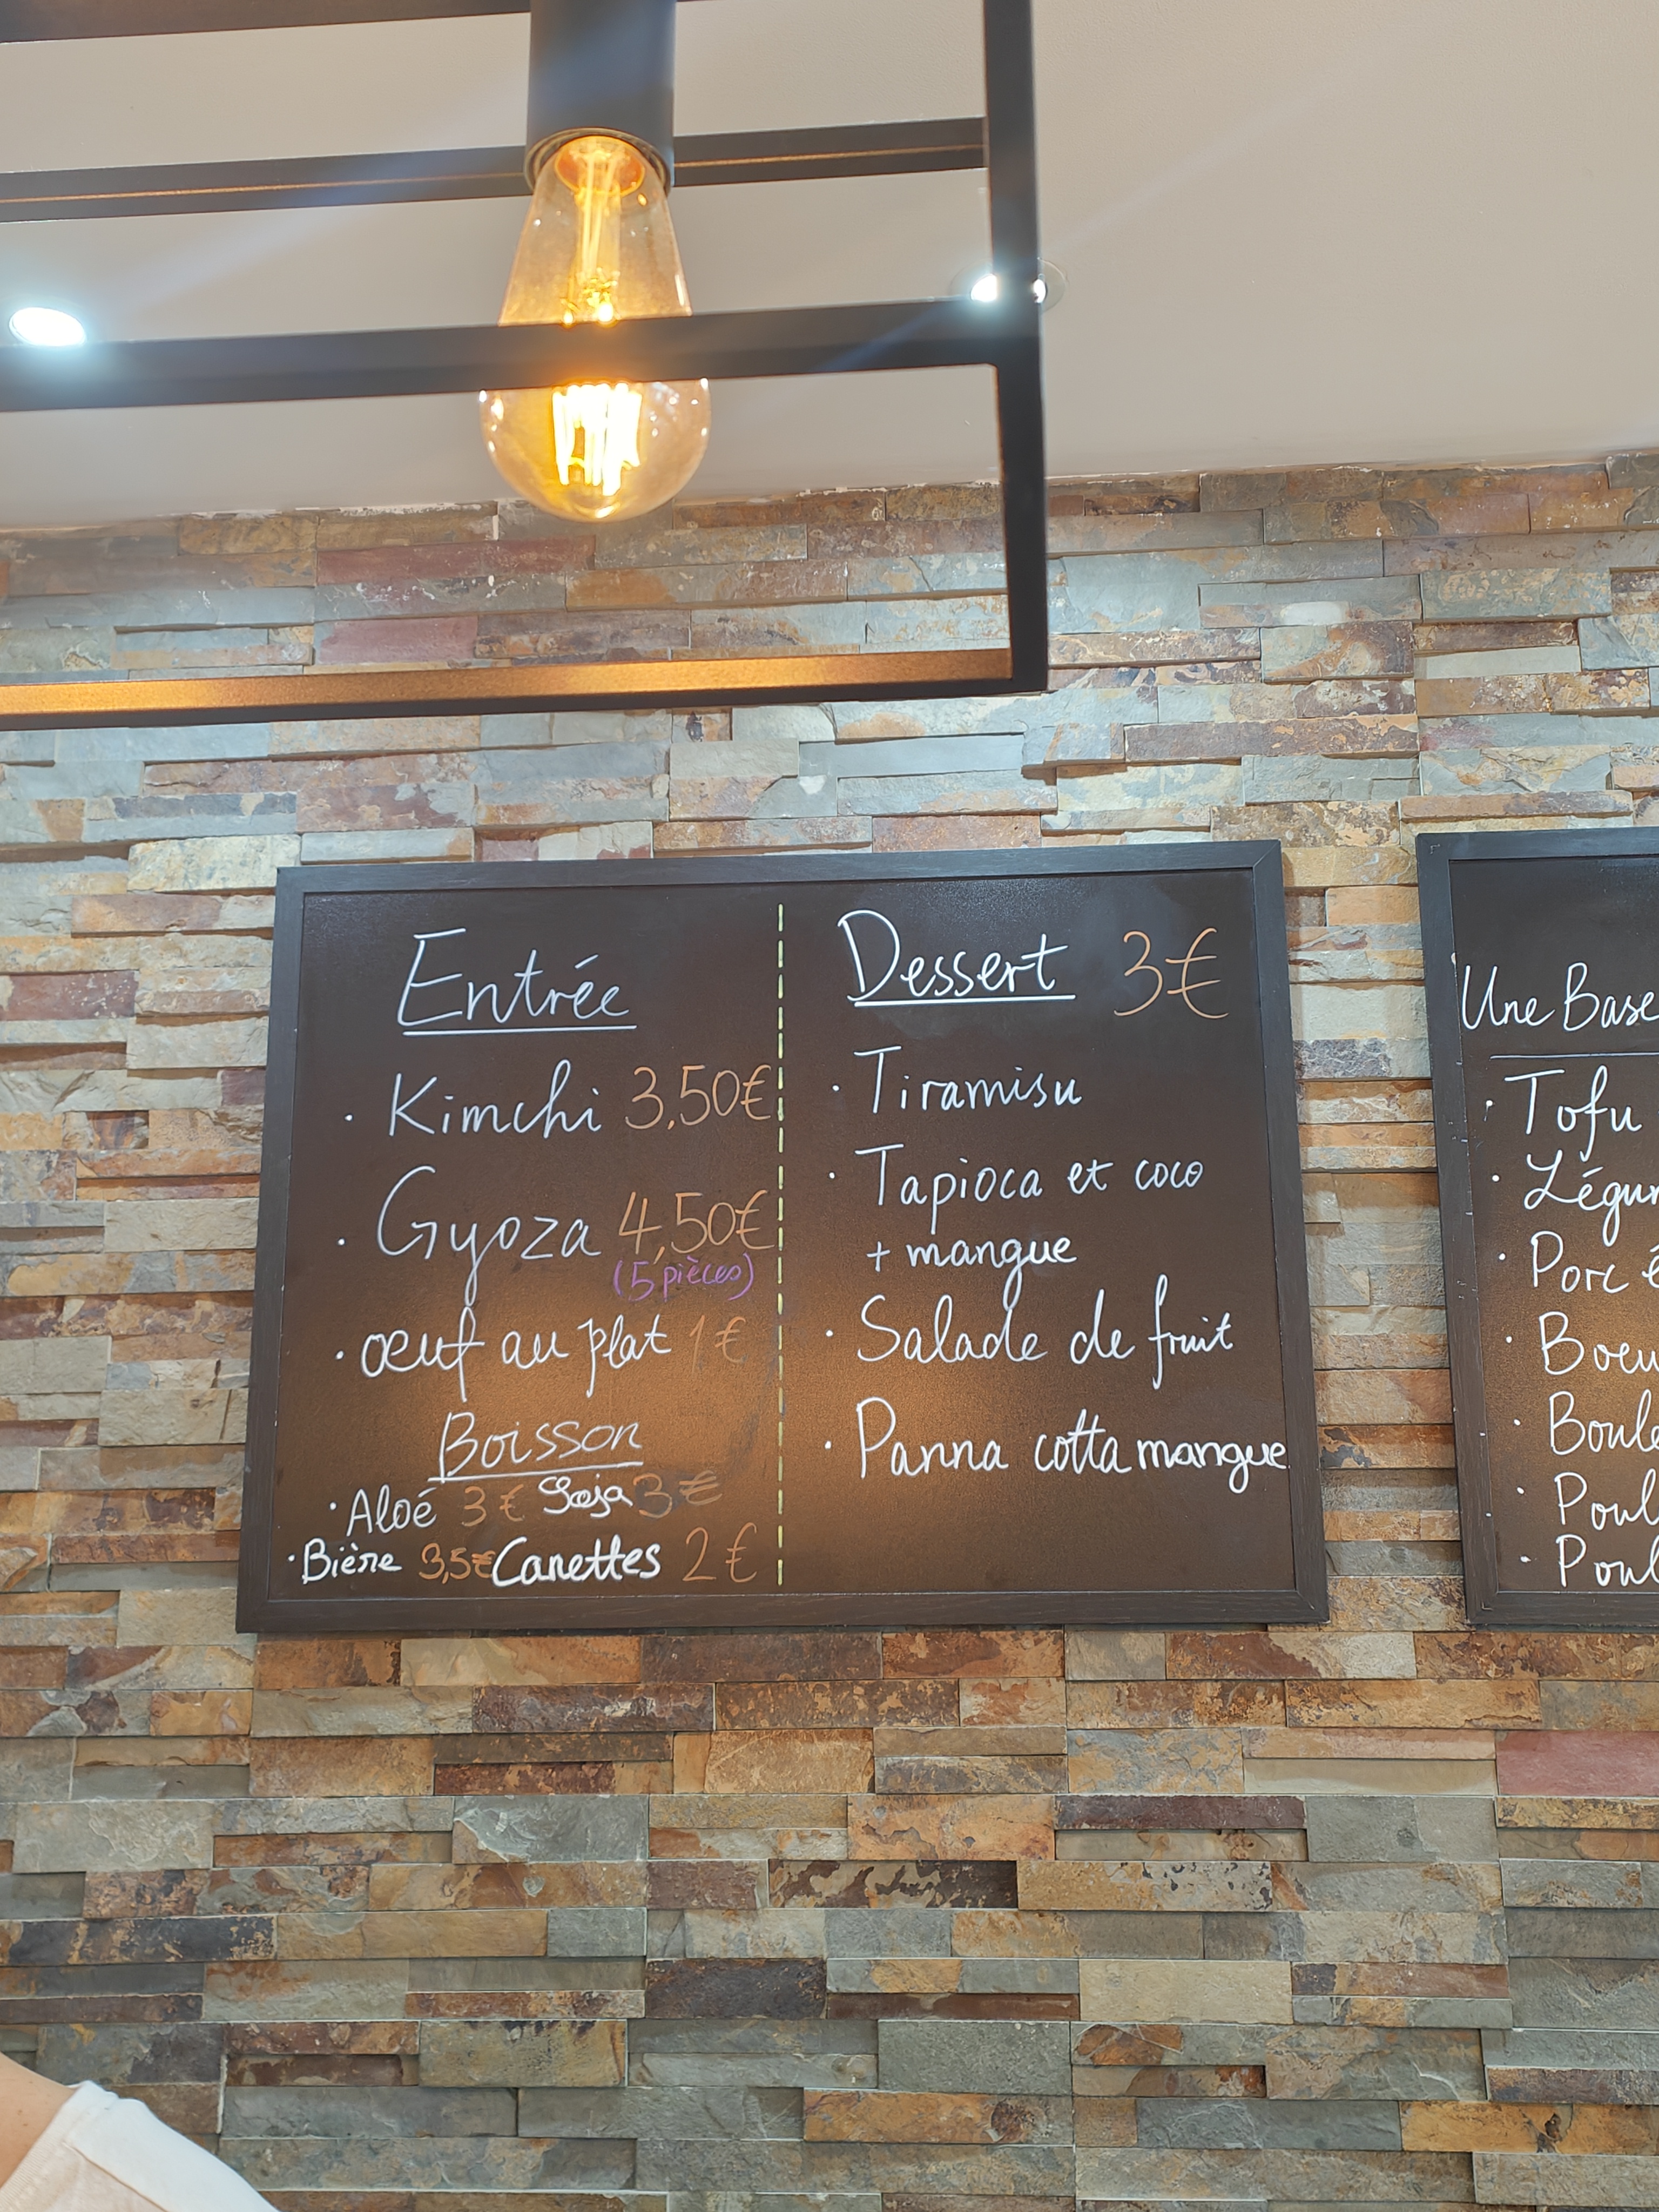 Entrée
· Kimchi 3,50€
· Gyoza 4,50€
(5 pièces)
· œuf au plat 1€
Boisson
· Aloé 3€ Soja 3€
· Bière 3,5€ Canettes 2€
Dessert 3€
· Tiramisu
· Tapioca et coco
+ mangue
· Salade de fruit
· Panna cotta mangue
Une Base
· Tofu
· Légum
· Porc é
· Boeu
· Boule
· Poul
· Poul